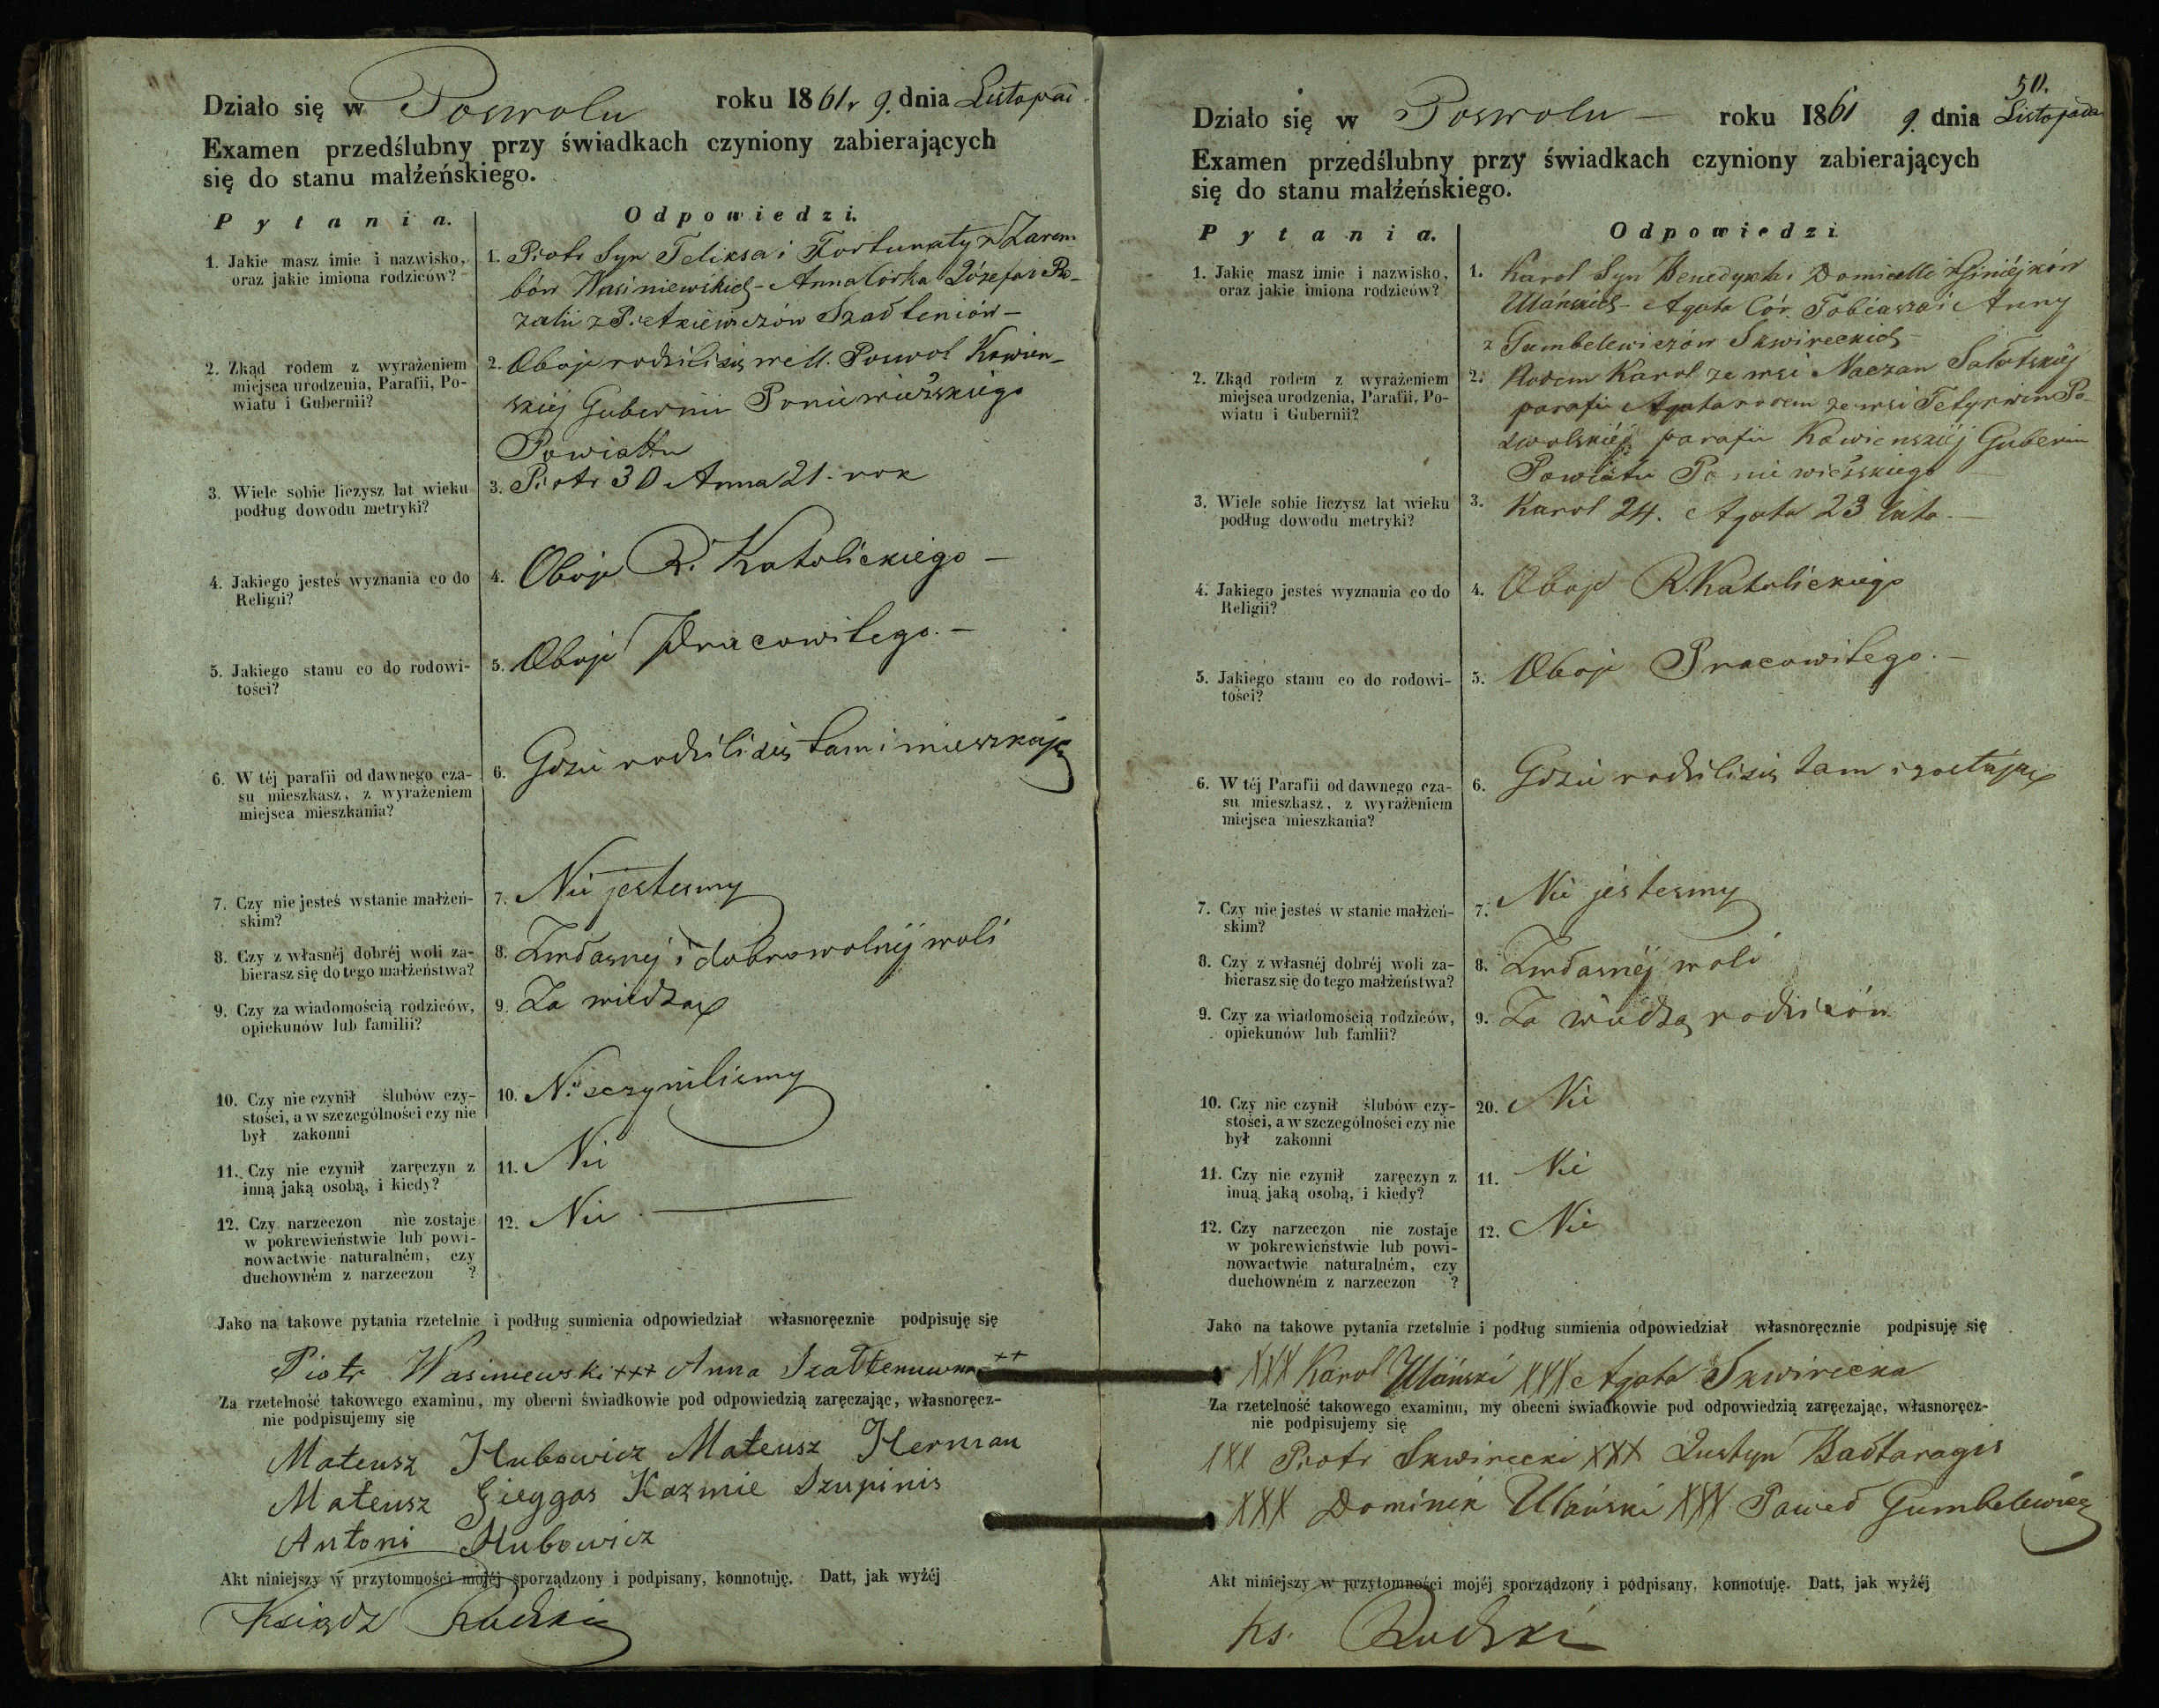 Działo się w Poswolu roku 1861 r 9. dnia Listopad
Examen przedślubny przy świadkach czyniony zabierających
się do stanu małżeńskiego.
Pytania. Odpowiedzi.
1. Jakie masz imie i nazwisko,
oraz jakie imiona rodziców?
1. Piotr Syn Felixa i Fortunaty z Zarem
bów Wasiniewskich - Anna Córka Józefa i Ro-
zalii z Pietkiewiczów Szadteniów -
2. Zkąd rodem z wyrażeniem
miejsca urodzenia, Parafii, Po-
wiatu i Gubernii?
2. Oboje rodzili się w M. Poswol Kowien-
skiej Gubernii Poniewieżskiego
Powiattu
3. Wiele sobie liczysz lat wieku
podług dowodu metryki?
3. Piotr 30 Anna 21. rok
4. Jakiego jesteś wyznania co do
Religii?
4. Oboje R. Katolickiego -
5. Jakiego stanu co do rodowi-
tości?
5. Oboje Pracowitego. -
6. W téj parafii od dawnego cza-
su mieszkasz, z wyrażeniem
miejsca mieszkania?
6. Gdzie rodzili się tam i mieszkają
7. Czy nie jesteś w stanie małżeń-
skim?
7. Nie jestesmy
8. Czy z własnéj dobréj woli za-
bierasz się do tego małżeństwa?
8. Z własnej i dobrowolnéj woli
9. Czy za wiadomością rodziców,
opiekunów lub familii?
9. Za wiedzą
10. Czy nie czynił ślubów czy-
stości, a w szczególności czy nie
był zakonni
10. Nie czynilismy
11. Czy nie czynił zaręczyn z
inną jaką osobą, i kiedy?
11. Nie
12. Czy narzeczon nie zostaje
w pokrewieństwie lub powi-
nowactwie naturalném, czy
duchowném z narzeczon ?
12. Nie
Jako na takowe pytania rzetelnie i podług sumienia odpowiedział własnoręcznie podpisuję się
Piotr Wasiniewski +++ Anna ++
Za rzetelność takowego examinu, my obecni świadkowie pod odpowiedzią zaręczając, własnoręcz-
nie podpisujemy się
Mateusz Hubowicz Mateusz Herman
Mateusz Gieggas Kazmie Szupinis
Antoni Hubowicz
Akt niniejszy w przytomności mojéj sporządzony i podpisany, konnotuję. Datt, jak wyżéj
Ksiądz Rudzki
50.
Działo się w Poswolu - roku 1861 9. dnia Listopada
Examen przedślubny przy świadkach czyniony zabierających
się do stanu małżeńskiego.
Pytania. Odpowiedzi
1. Jakie masz imie i nazwisko,
oraz jakie imiona rodziców?
1. Karol Syn Benedykta i Domicelli z
Ulańskich - Agata Cór. Tobiasza i Anny
z Gumbelewiczów Skwireckich -
2. Zkąd rodem z wyrażeniem
miejsca urodzenia, Parafii, Po-
wiatu i Gubernii?
2. Rodem Karol ze wsi Naczan Sałotskiéj
parafii Agata rodem ze wsi Tetyrwin Po-
zwolskiéj parafii Kowienskiéj Gubernii
Powiatu Poniewieżskiego
3. Wiele sobie liczysz lat wieku
podług dowodu metryki?
3. Karol 24. Agata 23 lata. -
4. Jakiego jesteś wyznania co do
Religii?
4. Oboje R. Katolickiego
5. Jakiego stanu co do rodowi-
tości?
5. Oboje Pracowitego. -
6. W téj Parafii od dawnego cza-
su mieszkasz, z wyrażeniem
miejsca mieszkania?
6. Gdzie rodzili się tam i zostają
7. Czy nie jesteś w stanie małżeń-
skim?
7. Nie jestesmy
8. Czy z własnéj dobréj woli za-
bierasz się do tego małżeństwa?
8. Z własnéj woli
9. Czy za wiadomością rodziców,
opiekunów lub familii?
9. Za wiedzą rodziców
10. Czy nie czynił ślubów czy-
stości, a w szczególności czy nie
był zakonni
20. Nie
11. Czy nie czynił zaręczyn z
inuą jaką osobą, i kiedy?
11. Nie
12. Czy narzeczon nie zostaje
w pokrewieństwie lub powi-
nowactwie naturalném, czy
duchowném z narzeczon ?
12. Nie
Jako na takowe pytania rzetelnie i podług sumienia odpowiedział własnoręcznie podpisuję się
XXX Karol Ulański XXX Agata Skwirecka
Za rzetelność takowego examinu, my obecni świadkowie pod odpowiedzią zaręczając, własnoręcz-
nie podpisujemy się
XXX Piotr Skwirecki XXX Justyn Bałtaragis
XXX Dominik Ulański XXX Paweł Gumbelewicz
Akt niniejszy w przytomności mojéj sporządzony i podpisany, konnotuję. Datt, jak wyżéj
Ks. Rudzki